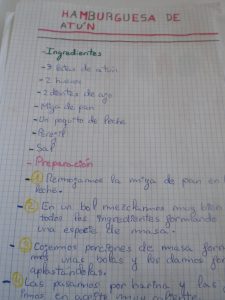 HAMBURGUESA DE
ATÚN
-Ingredientes
-3 latas de atún
-2 huevos
-2 dientes de ajo
-Miga de pan
-Un poquito de leche
-Perejil
-Sal
-Preparación
-1 Remojamos la miga de pan en
leche.
-2 En un bol mezclamos muy bien
todos los ingredientes formando
una especie de masa.
-3 Cogemos porciones de masa
mos unas bolas y les damos
aplastándolas.
-4 Las pasamos por harina y las
en aceite muy caliente